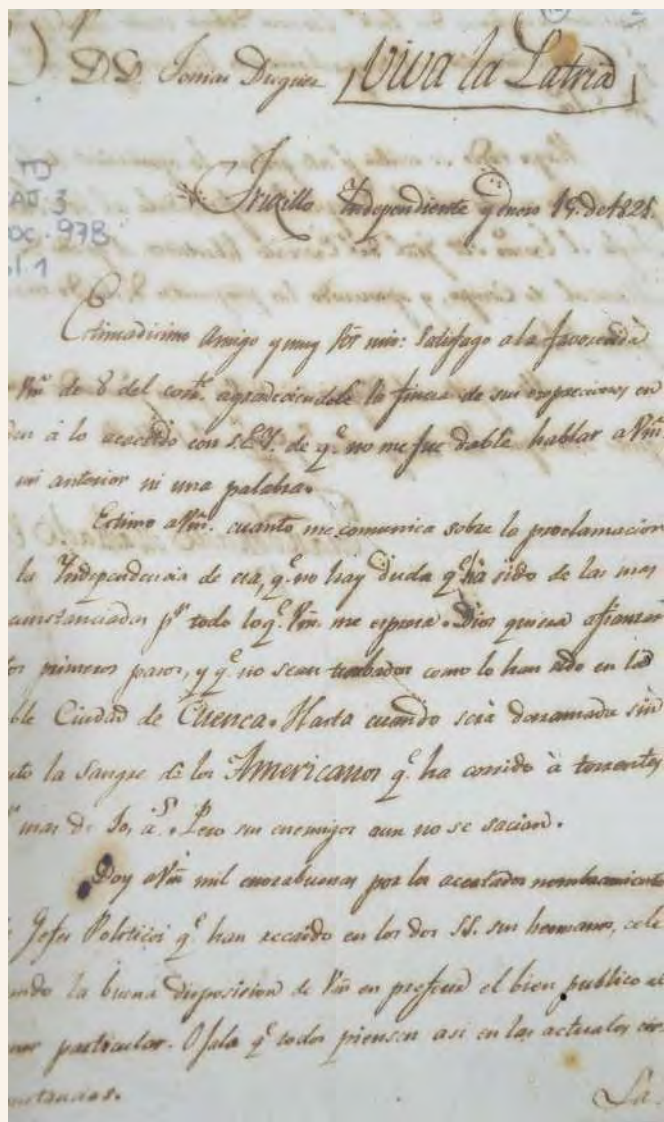 D.D. Tomas Dieguez Viva la Patria
Truxillo Independiente y enero 19. de 1821.
TJ
3
DOC. 978
l. 1
Estimadisimo Amigo y muy Sor mio: Satisfago a la favorecida
Vm. de 8 del corte. agradeciendole la fineza de sus expreciones en
den á lo acaecido con S.E.Y. de qe. no me fue dable hablar a Vm.
mi anterior ni una palabra.
Estimo a Vm. cuanto me comunica sobre la proclamacion
la Yndependencia de esa, qe. no hay duda qe. há sido de las mas
cunstanciadas pr. todo lo qe. Vm. me expresa. Dios quiera afianzar
los primeros pasos, y qe. no sean turbados como lo han sido en la
ble Ciudad de Cuenca. Harta cuando será derramada sin
uto la sangre de los Americanos qe. ha corrido à torrentes
mas de 10, as. Pero sus enemigos aun no se sacian.
Doy a Vm mil enorabuenas por los acertados nombramientos
Jefes Politicos qe. han recaido en los dos SS. sus hermanos, cele
ando la buena disposicion de Vm en preferir el bien publico al
particular. Ojala qe. todos piensen asi en las actuales cir
nstancias.
La.